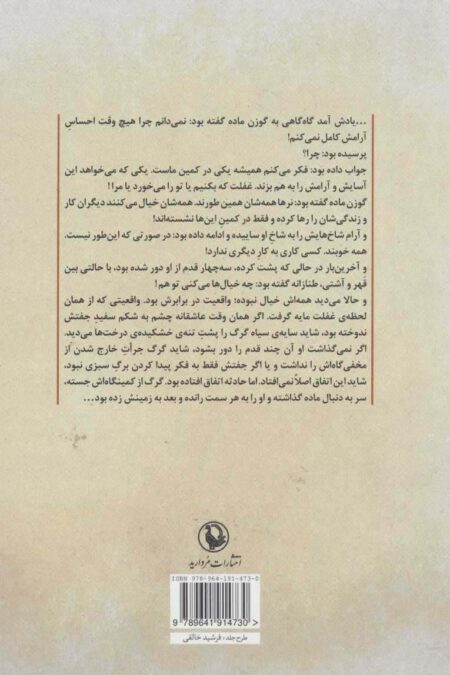 ...یادش آمد گاه‌گاهی به گوزن ماده گفته بود: نمی‌دانم چرا هیچ وقت احساسِ
آرامش کامل نمی‌کنم!
پرسیده بود: چرا؟
جواب داده بود: فکر می‌کنم همیشه یکی در کمین ماست. یکی که می‌خواهد این
آسایش و آرامش را به هم بزند. غفلت که بکنیم یا تو را می‌خورد یا مرا!
گوزن ماده گفته بود: نرها همه‌شان همین طورند. همه‌شان خیال می‌کنند دیگران کار
و زندگی‌شان را رها کرده و فقط در کمین این‌ها نشسته‌اند!
و آرام شاخ‌هایش را به شاخ او ساییده و ادامه داده بود: در صورتی که این‌طور نیست.
همه خوبند. کسی کاری به کارِ دیگری ندارد!
و آخرین‌بار در حالی که پشت کرده، سه‌چهار قدم از او دور شده بود، با حالتی بین
قهر و آشتی، طنازانه گفته بود: چه خیال‌ها می‌کنی تو هم!
و حالا می‌دید همه‌اش خیال نبوده؛ واقعیت در برابرش بود. واقعیتی که از همان
لحظه‌ی غفلت مایه گرفت. اگر همان وقت عاشقانه چشم به شکم سفید جفتش
ندوخته بود، شاید سایه‌ی سیاه گرگ را پشتِ تنه‌ی خشکیده‌ی درخت‌ها می‌دید.
اگر نمی‌گذاشت او آن چند قدم را دور بشود، شاید گرگ جرأتِ خارج شدن از
مخفی‌گاه‌اش را نداشت و یا اگر جفتش فقط به فکر پیدا کردن برگِ سبزی نبود،
شاید این اتفاق اصلاً نمی‌افتاد. اما حادثه اتفاق افتاده بود. گرگ از کمینگاه‌اش جسته،
سر به دنبال ماده گذاشته و او را به هر سمت رانده و بعد به زمینش زده بود...
انتشارات مروارید
ISBN 978-964-191-473-0
9 789641 914730 >
طرح جلد: فرشید خالقی